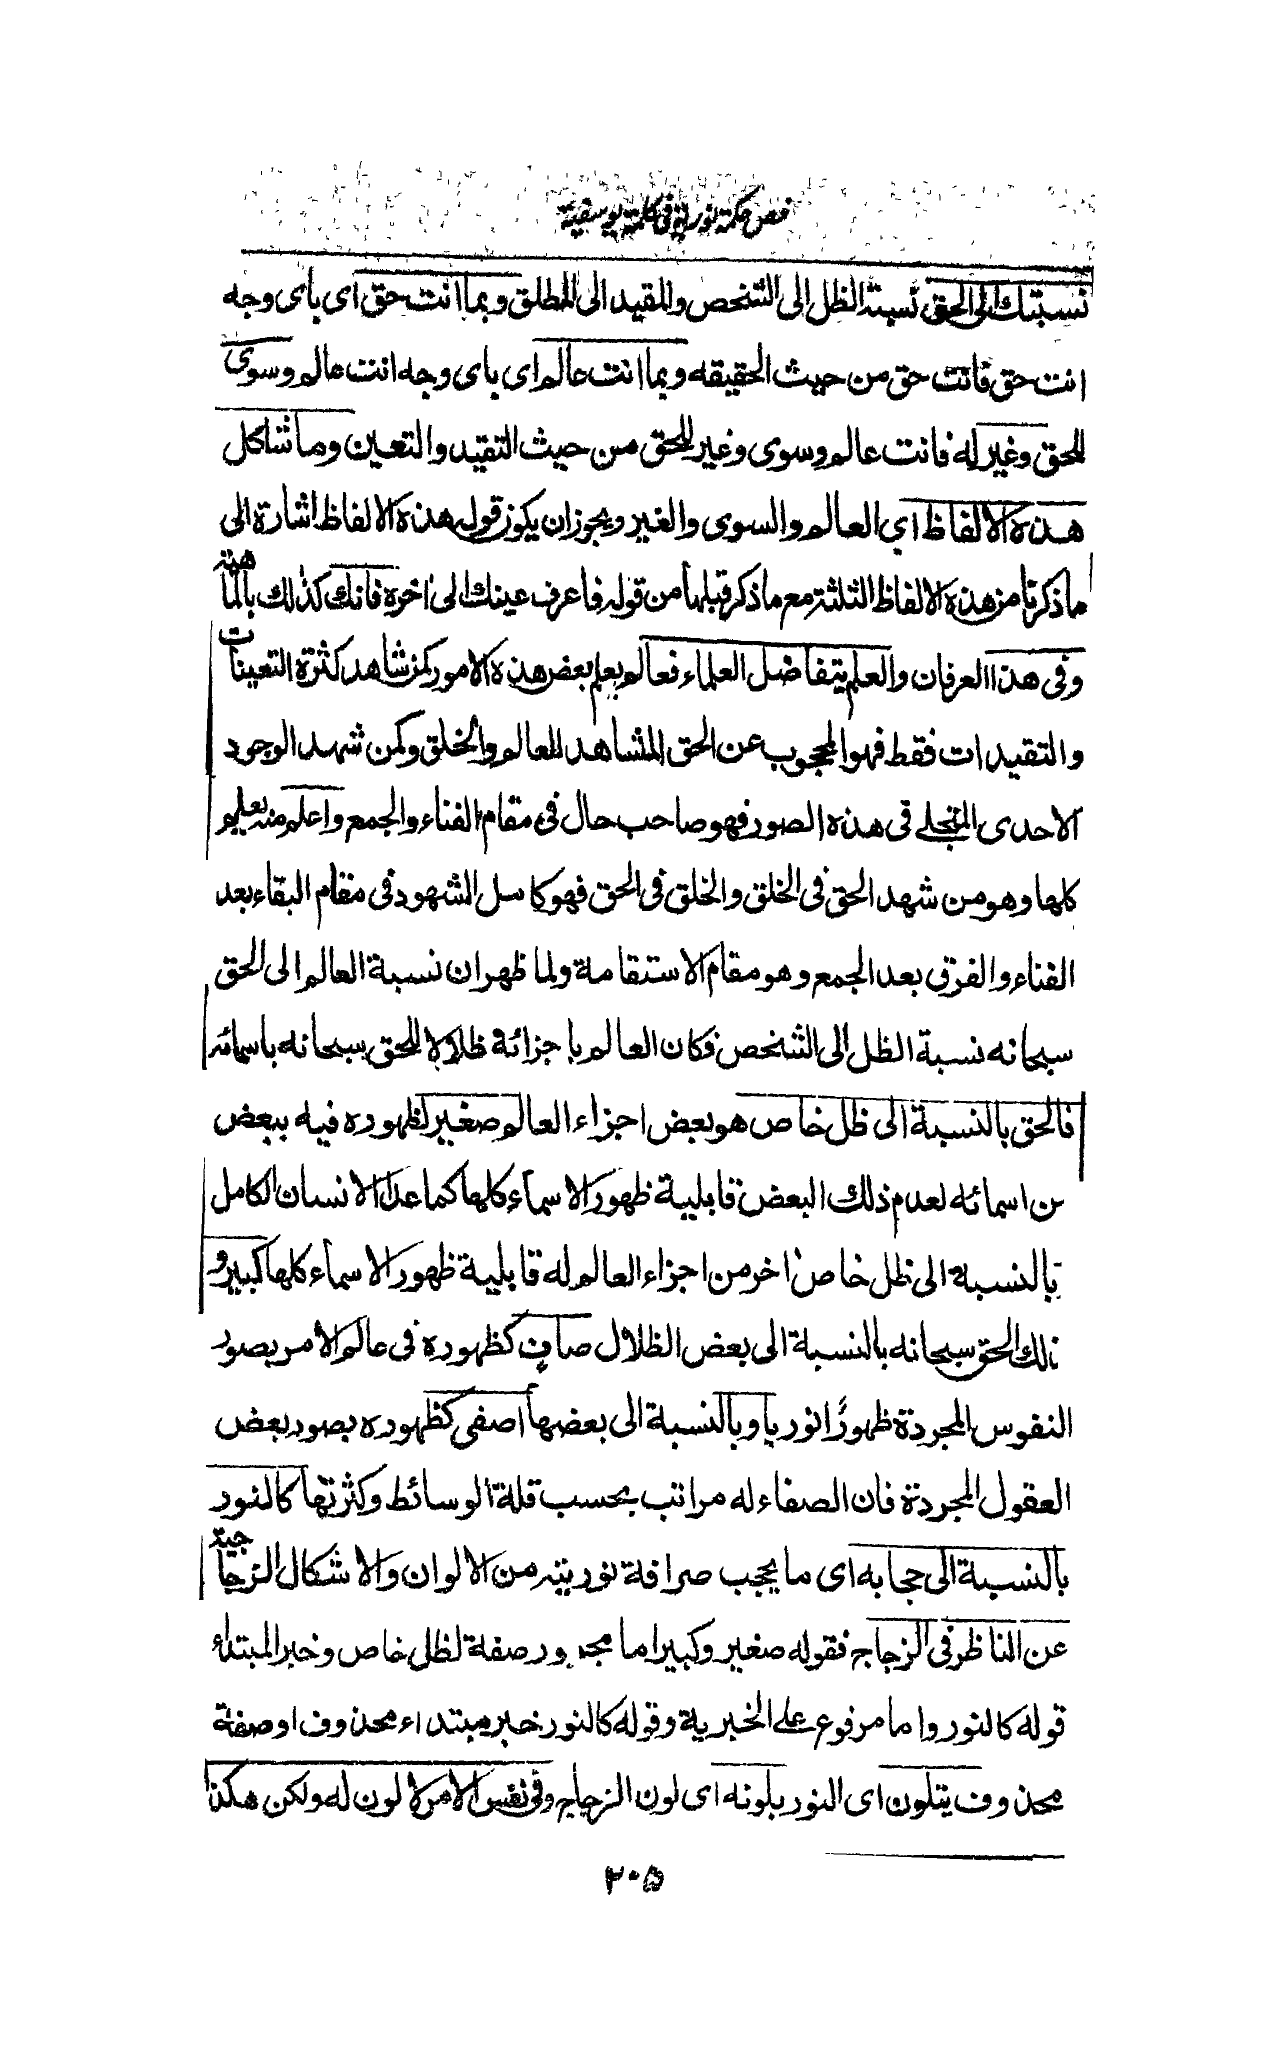 فص حكمة نورية في كلمة يوسفية
نسبتك الى الحق نسبة الظل الى الشخص والمقيد الى المطلق وبما انت حق اى باى وجه
انت حق فانت حق من حيث الحقيقه وبما انت عالم اى باى وجه انت عالم وسوى
للحق وغير له فانت عالم وسوى وغير للحق من حيث التقيد والتعين وما شاكل
هذه الالفاظ اي العالم والسوى والغير ويجوز ان يكون قوله هذه الالفاظ اشارة الى
ما ذكرنا من هذه الالفاظ الثلثة مع ما ذكر قبلها من قوله فاعرف عينك الى اخره فانك كذلك بالماهية
وفى هذا العرفان والعلم يتفاضل العلماء فعالم يعلم بعض هذه الامور كمن شاهد كثرة التعينات
والتقيدات فقط فهو المحجوب عن الحق المشاهد للعالم والخلق وكمن شهد الوجود
الاحدى المتجلى فى هذه الصور فهو صاحب حال فى مقام الفناء والجمع واعلم منه يعلم
كلها وهو من شهد الحق فى الخلق والخلق فى الحق فهو كامل الشهود فى مقام البقاء بعد
الفناء والفرق بعد الجمع وهو مقام الاستقامة ولما ظهر ان نسبة العالم الى الحق
سبحانه نسبة الظل الى الشخص فكان العالم باجزائه ظلالا للحق سبحانه باسمائه
فالحق بالنسبة الى ظل خاص هو بعض اجزاء العالم صغير لظهوره فيه ببعض
من اسمائه لعدم ذلك البعض قابلية ظهور الاسماء كلها كما عدا الانسان الكامل
بالنسبة الى ظل خاص اخر من اجزاء العالم له قابلية ظهور الاسماء كلها كبير و
ذلك الحق سبحانه بالنسبة الى بعض الظلال صاف كظهوره فى عالم الامر بصور
النفوس المجردة ظهورًا نوريا وبالنسبة الى بعضها اصفى كظهوره بصور بعض
العقول المجردة فان الصفاء له مراتب بحسب قلة الوسائط وكثرتها كالنور
بالنسبة الى حجابه اى ما يحجب صرافة نوريته من الالوان والاشكال الزجاجية
عن الناظر فى الزجاج فقوله صغير وكبير اما مجرور صفة لظل خاص وخبر المبتداء
قوله كالنور واما مرفوع على الخبرية وقوله كالنور خبر مبتداء محذوف او صفة
محذوف يتلون اى النور بلونه اى لون الزجاج وفى نفس الامر لا لون له ولكن هكذا
٢٠٥